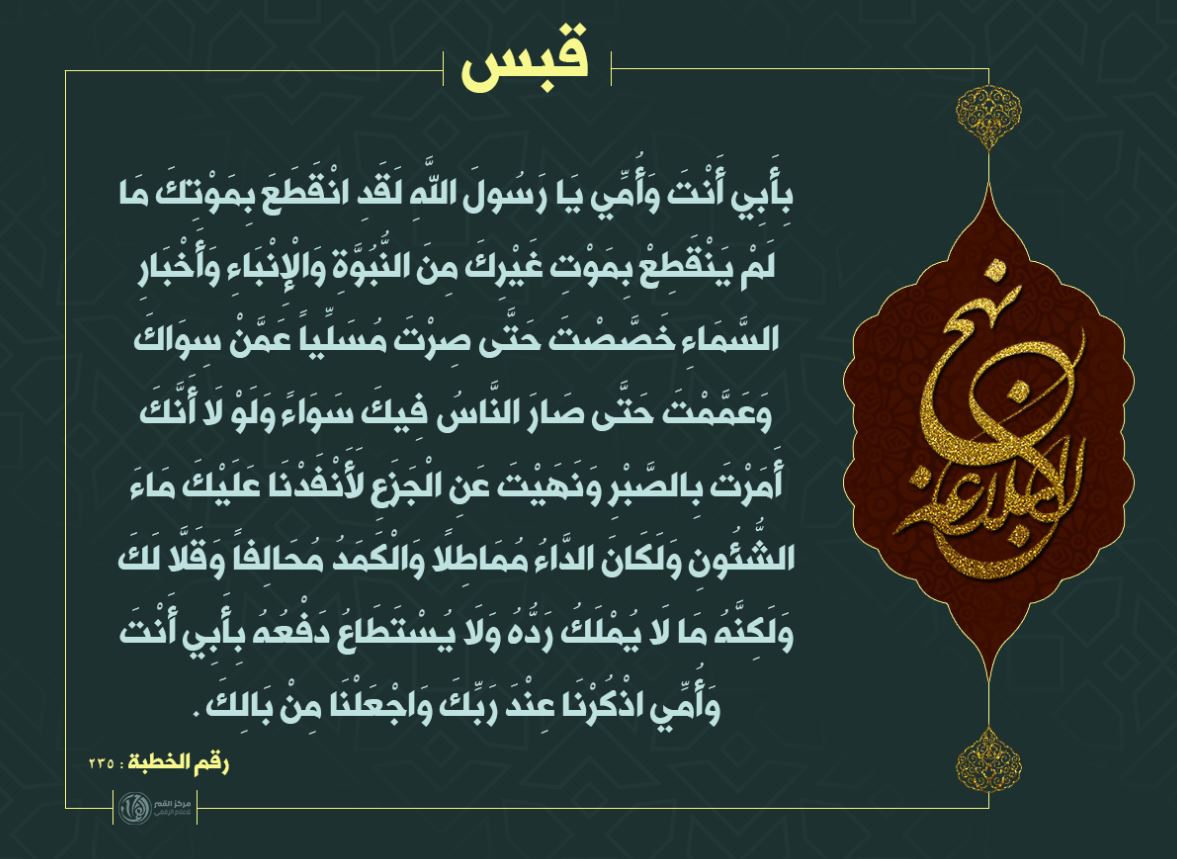 قبس
نهج
البلاغة
بِأَبِي أَنْتَ وَأُمِّي يَا رَسُولَ اللَّهِ لَقَدِ انْقَطَعَ بِمَوْتِكَ مَا
لَمْ يَنْقَطِعْ بِمَوْتِ غَيْرِكَ مِنَ النُّبُوَّةِ وَالْإِنْبَاءِ وَأَخْبَارِ
السَّمَاءِ خَصَّصْتَ حَتَّى صِرْتَ مُسَلِّياً عَمَّنْ سِوَاكَ
وَعَمَّمْتَ حَتَّى صَارَ النَّاسُ فِيكَ سَوَاءً وَلَوْ لَا أَنَّكَ
أَمَرْتَ بِالصَّبْرِ وَنَهَيْتَ عَنِ الْجَزَعِ لَأَنْفَدْنَا عَلَيْكَ مَاءَ
الشُّئُونِ وَلَكَانَ الدَّاءُ مُمَاطِلًا وَالْكَمَدُ مُحَالِفاً وَقَلَّا لَكَ
وَلَكِنَّهُ مَا لَا يُمْلَكُ رَدُّهُ وَلَا يُسْتَطَاعُ دَفْعُهُ بِأَبِي أَنْتَ
وَأُمِّي اذْكُرْنَا عِنْدَ رَبِّكَ وَاجْعَلْنَا مِنْ بَالِكَ .
رقم الخطبة : ٢٣٥
مركز القمر
للاعلام الرقمي